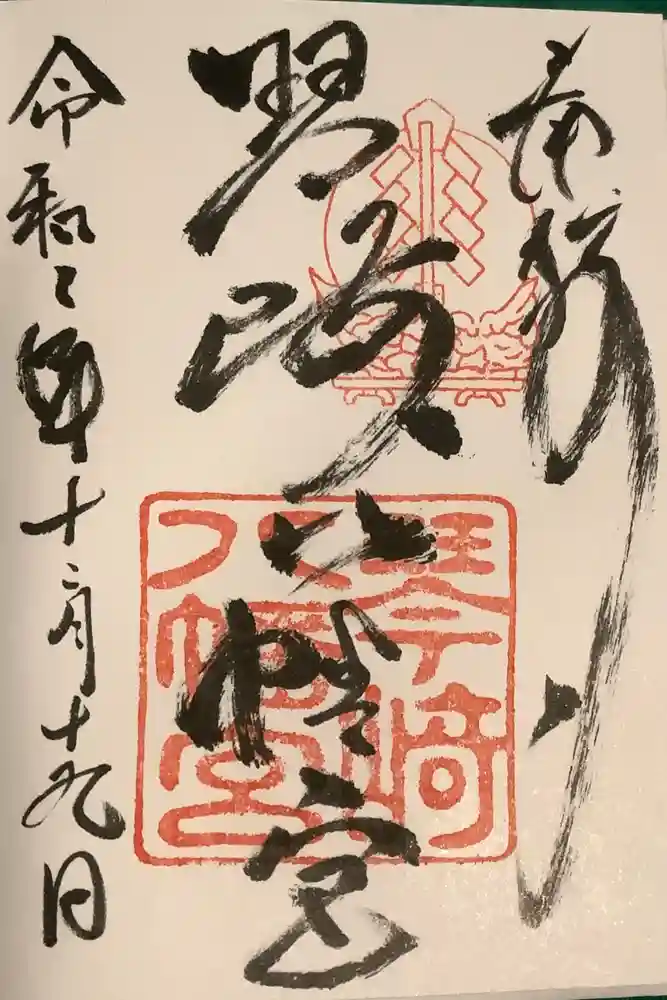 奉拝
琴崎八幡宮
琴崎
八幡宮
令和二年十二月十九日